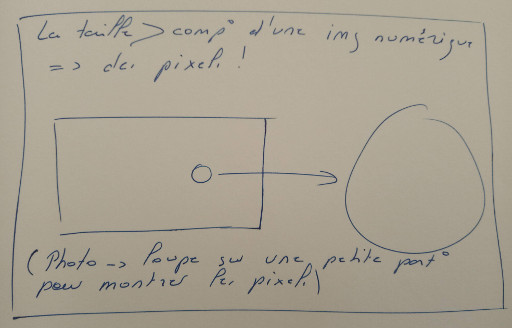 La taille > comp° d'une img numérique
=> des pixels !
(Photo -> Loupe sur une petite part°
pour montrer les pixels)